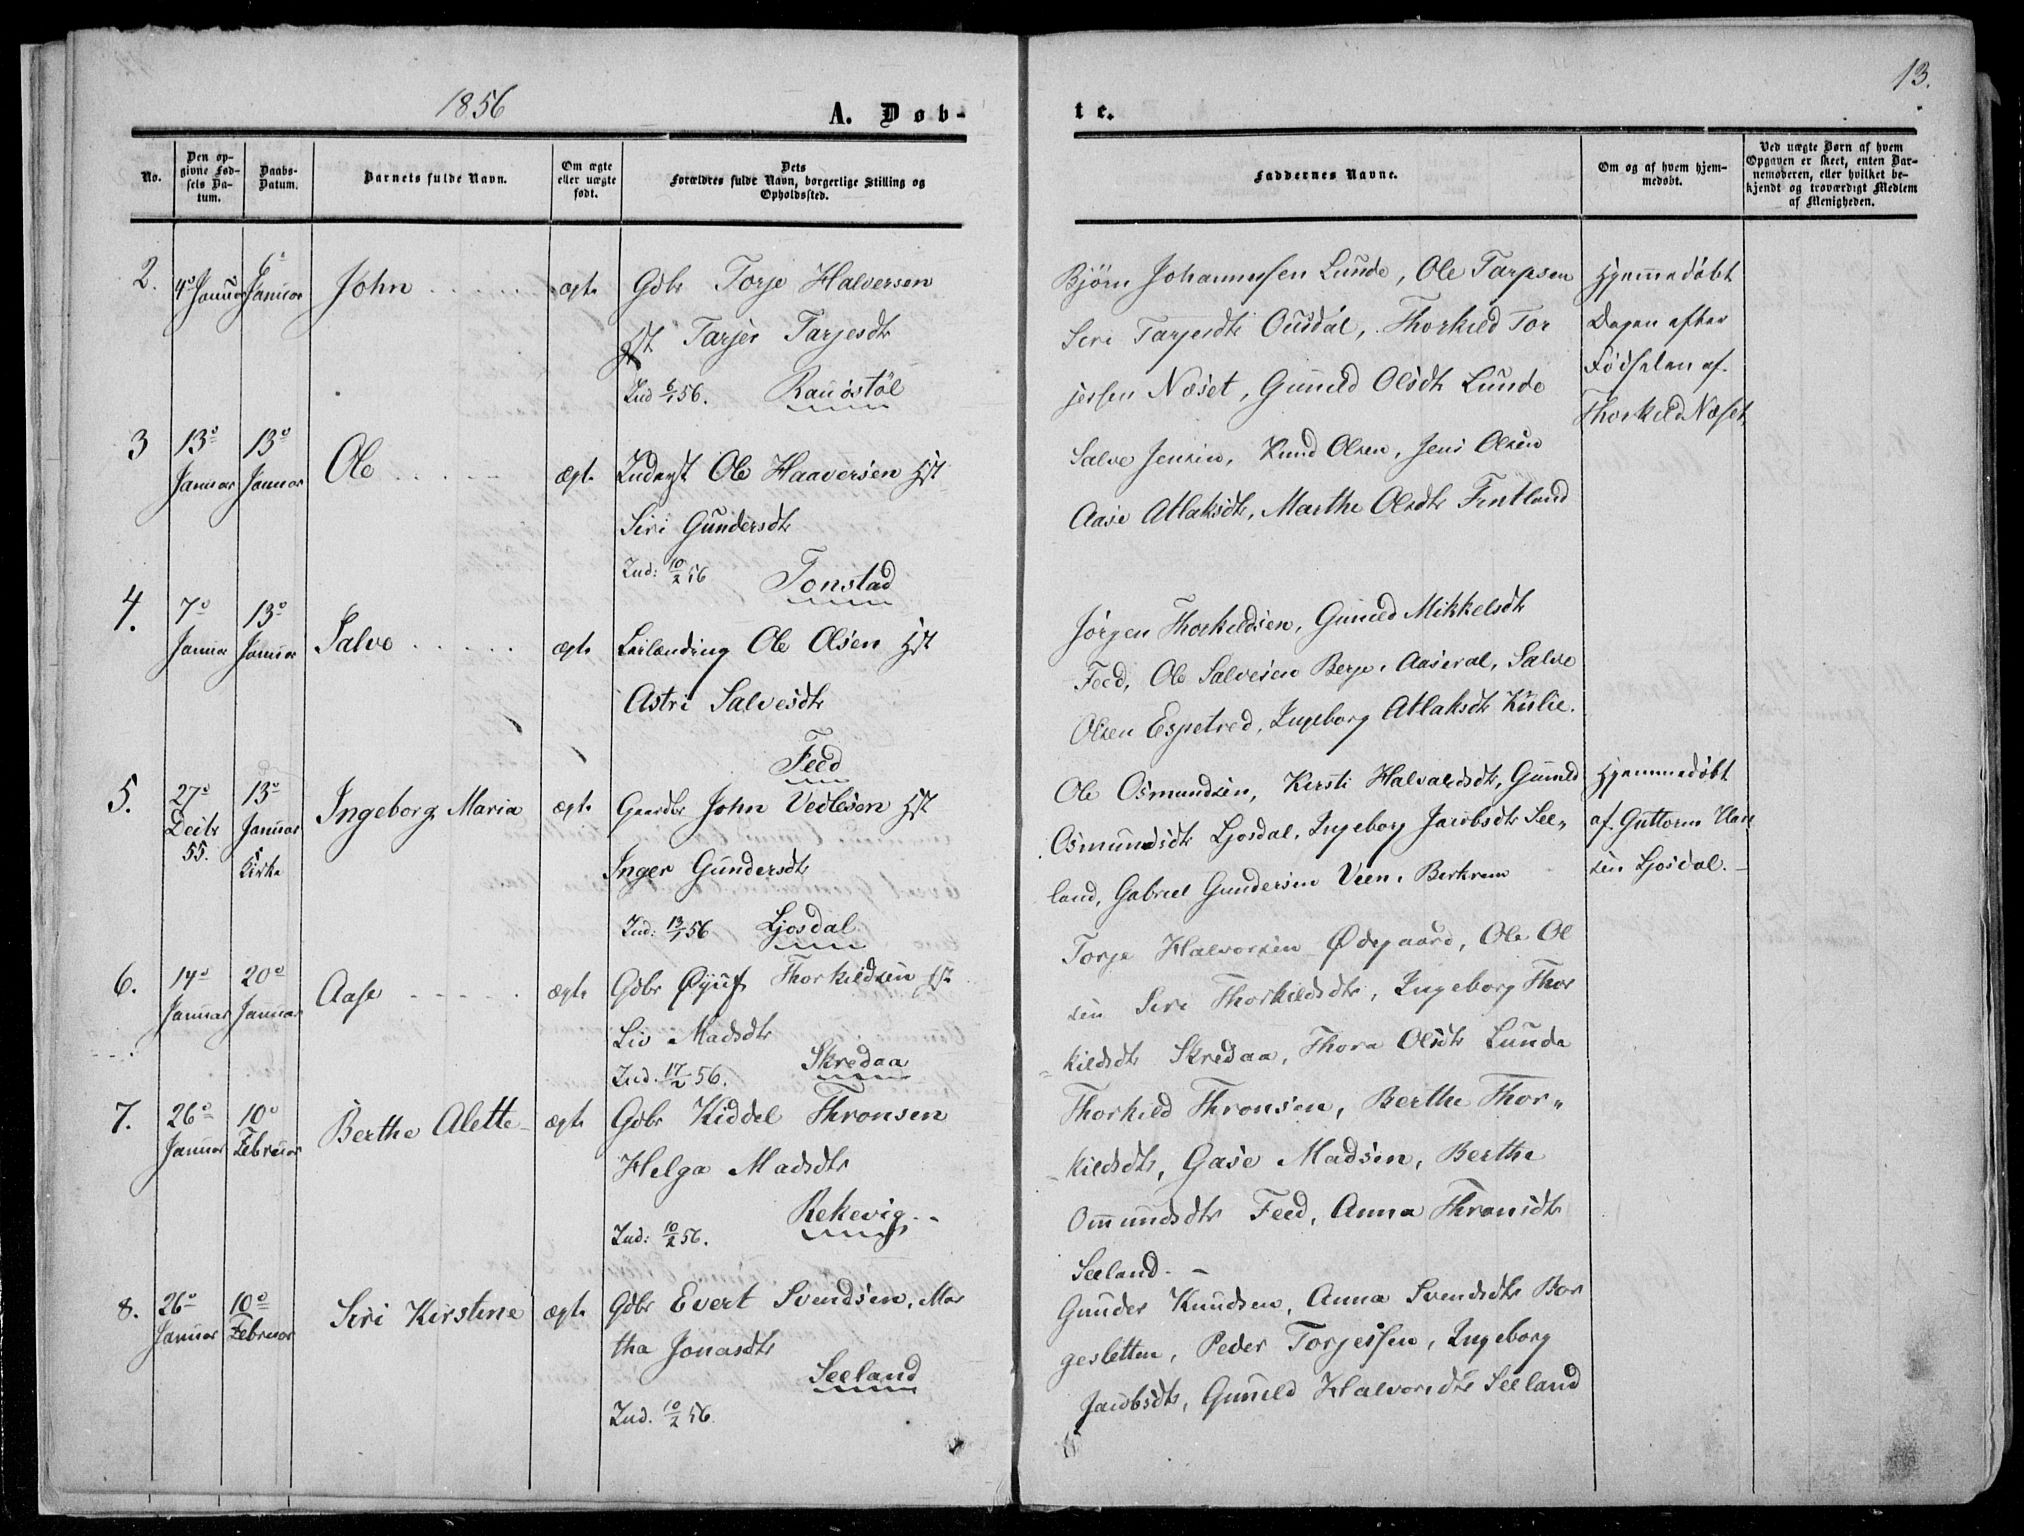 1856
A. Døb-
te.
13.
No.
Den op-
givne Fød-
sels Da-
tum.
Daabs-
Datum.
Barnets fulde Navn.
Om ægte
eller uægte
født.
Dets
Forældres fulde Navn, borgerlige Stilling og
Opholdssted.
Faddernes Navne.
Om og af hvem hjem-
medøbt.
Ved uægte Børn af hvem
Opgaven er skeet, enten Bar-
nemoderen, eller hvilket be-
kjendt og troværdigt Medlem
af Menigheden.
2. 4de Januar 6te Januar John ægte Gdbr Torje Halversen
Tarjer Tarjesdtr
Ind 6/1 56. Rauøstøl
Bjørn Johannessen Lunde, Ole Tarjesen
Siri Tarjesdtr Ousdal, Thorkild Tor
jessen Næset, Gunild Olsdtr Lunde
Hjemmedøbt
Dagen efter
Fødselen af
Thorkild Næset.
3 13de Januar 13de Januar Ole ægte Inderst Ole Haaversen Hst
Siri Gundersdtr
Ind: 10/2 56 Tonstad
Salve Jensen, Knud Olsen, Jens Olsen
Aase Atlaksdtr, Marthe Olsdtr Fintland
4. 7de Januar 13de Januar Salve ægte Leilending Ole Olsen Hst
Astri Salvesdtr
Feed
Jørgen Thorkildsen, Gunild Mikkelsdtr
Feed, Ole Salvesen Berge, Aaseral, Salve
Olsen Espetved, Ingeborg Atlaksdtr Kulie.
5. 27de Decbr 55. 13de Januar Kirke Ingeborg Maria ægte Gaardbr John Vedlesen Hst
Inger Gundersdtr
Ind: 13/1 56 Ljosdal
Ole Osmundsen, Kersti Halvardsdtr, Gunild
Osmundsdtr Ljosdal, Ingeborg Jacobsdtr See-
land, Gabriel Gundersen Veen, Berkrem
Hjemmedøbt
af Guttorm
sen Ljosdal.
6. 14de Januar 20de Januar Aase ægte Gdbr Øyuf Thorkildsen Hst
Liv Madsdtr
Ind. 17/2 56. Skredaa
Torje Halvorsen Ødegaard, Ole Ol
sen Siri Thorkildsdtr, Ingeborg Thor
kildsdtr Skredaa, Thora Olsdtr Lunde
7. 26de Januar 10de Februar Berthe Alette ægte Gdbr Kiddel Thronsen
Helga Madsdtr
Rekevig
Ind: 10/2 56.
Thorkild Thronsen, Berthe Thor-
kildsdtr, Gase Madsen, Berthe
Ommundsdtr Feed, Anna Thronsdtr
Seeland.
8. 26de Januar 10de Februar Siri Kirstine ægte Gdbr Evert Svendsen, Mar
tha Jonasdtr
Seeland
Ind. 10/2 56.
Gunder Knudsen, Anna Svendsdtr Bor
gesletten, Peder Torjessen, Ingeborg
Jacobsdtr, Gunild Halvorsdtr Seeland